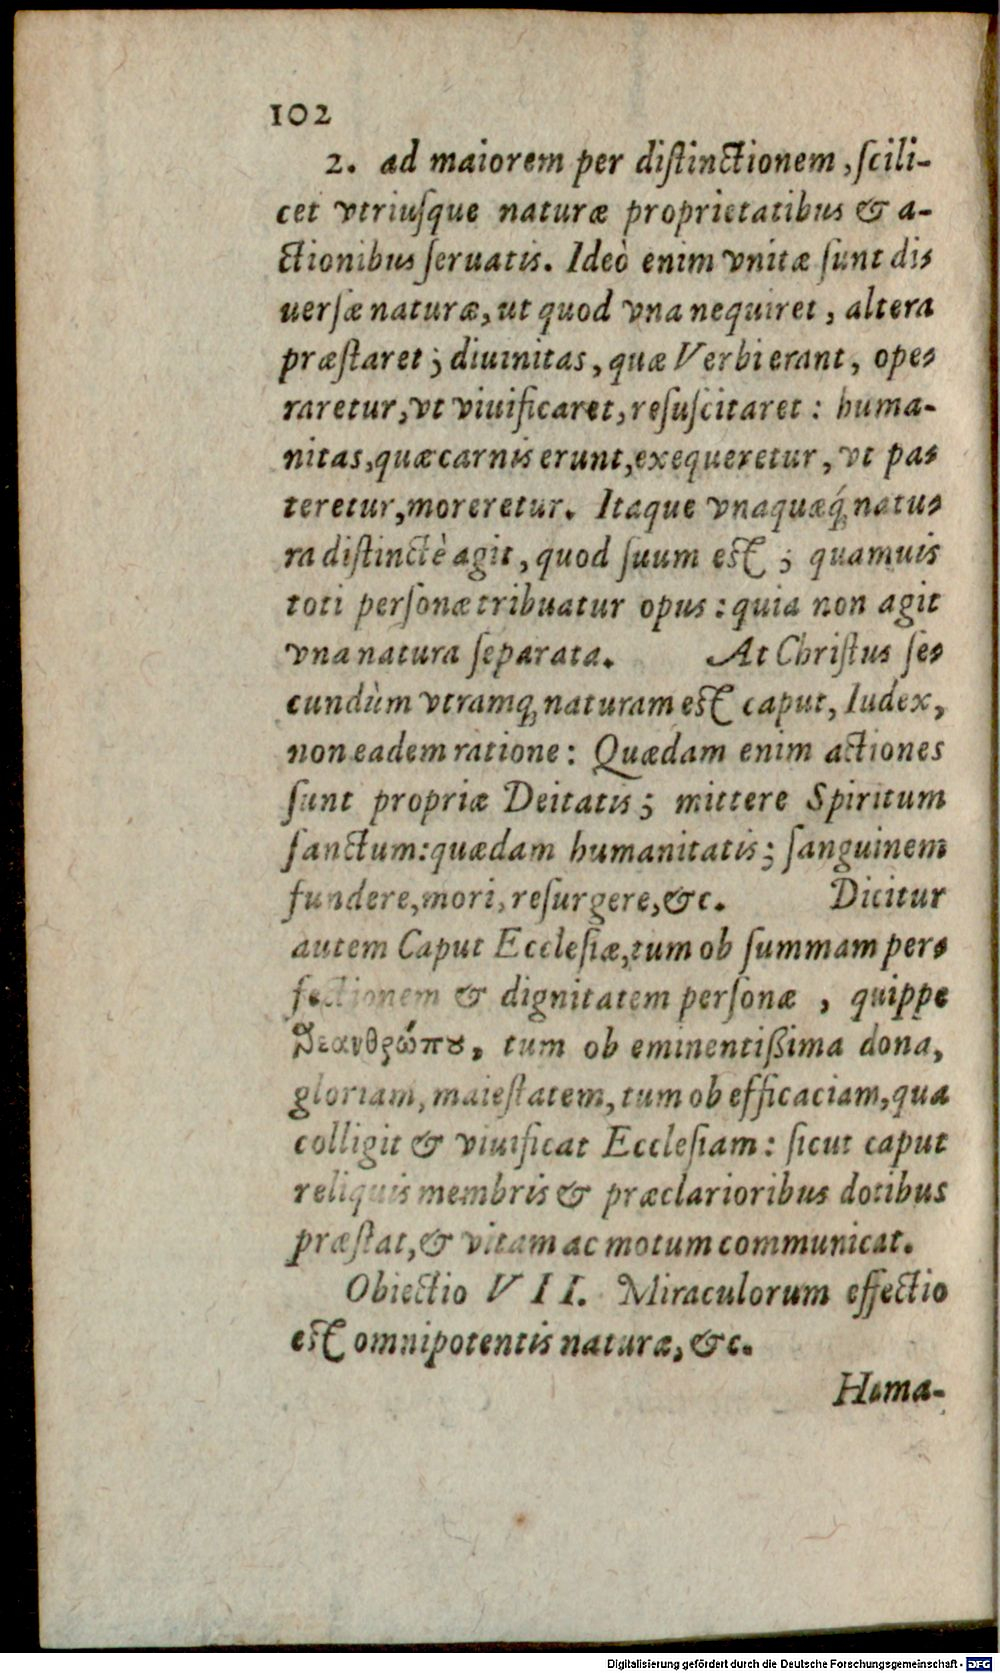 102
2. ad maiorem per distinctionem, scili-
cet vtriusque naturæ proprietatibus & a-
ctionibus seruatis. Ideò enim vnitæ sunt di-
uersæ naturæ, ut quod vna nequiret, altera
præstaret; diuinitas, quæ Verbi erant, ope-
raretur, vt viuificaret, resuscitaret: huma-
nitas, quæ carnis erunt, exequeretur, vt pa-
teretur, moreretur. Itaque vnaquæq́; natu-
ra distinctè agit, quod suum est; quamuis
toti personæ tribuatur opus: quia non agit
vna natura separata. At Christus se-
cundùm vtramq; naturam est caput, Iudex,
non eadem ratione: Quædam enim actiones
sunt propriæ Deitatis; mittere Spiritum
sanctum: quædam humanitatis; sanguinem
fundere, mori, resurgere, &c. Dicitur
autem Caput Ecclesiæ, tum ob summam per-
fectionem & dignitatem personæ, quippe
θεανθρώπου, tum ob eminentißima dona,
gloriam, maiestatem, tum ob efficaciam, qua
colligit & viuificat Ecclesiam: sicut caput
reliquis membris & præclarioribus dotibus
præstat, & vitam ac motum communicat.
Obiectio VII. Miraculorum effectio
est omnipotentis naturæ, &c.
Huma-
Digitalisierung gefördert durch die Deutsche Forschungsgemeinschaft - DFG